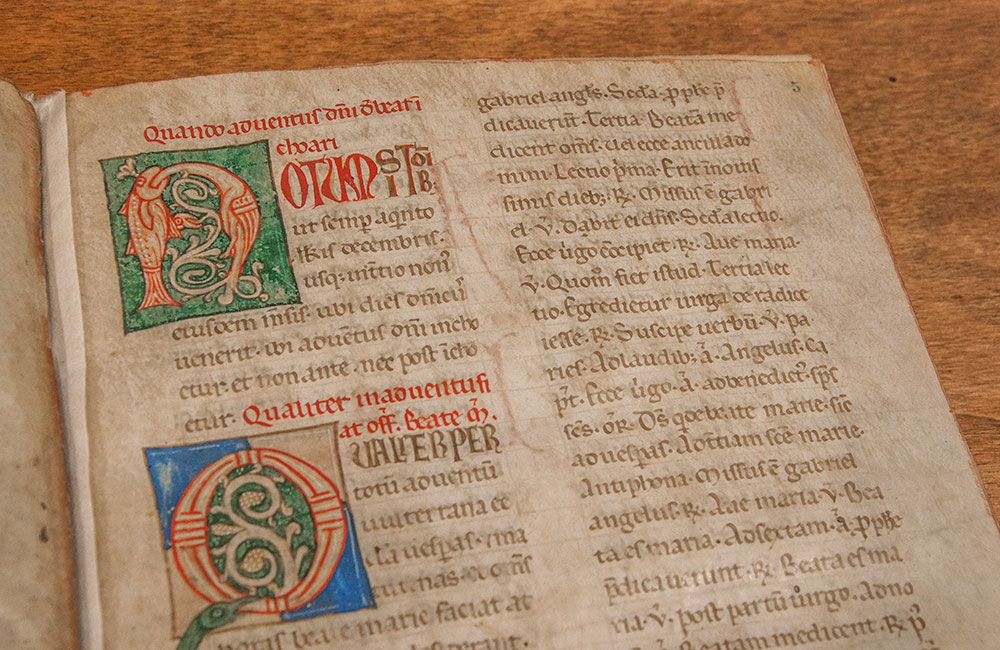 Quando aduentus dñi debeat ī
choari
NOTUM SIT oī
B;
ut semp a qrito
kl's decembris.
usq; in tītio non̄
eiusdem m̄sis. ubi dies om̄icꝰ
uenerit. ibi aduētus dñi incho
etur. et non ante. nec post īcho
etur. Qualiter in aduentu fi
at off̄. Beate ꝳ.
QUALITER PER
totū aduentū
la uesp̄as. ma
tutinas. & om̄s
horas beate marie faciat at
5
gabriel angl's. Sed'a. p̄phē p̄
dicauerūt. Tertia. Beatā me
dicent om̄s. uel ecce ancilla do
mini. Lectio p̄ma. Erit in noui
simis dieb;. ℟. Missus ē gabri
el. ℣. Dabit ei dn̄s. Sed'a lectio.
Ecce ūgo cōcipiet. ℟. Aue maria.
℣. Quom̄ fiet istud. Tertia lec
tio. Egredietur uirga de radice
iesse. ℟. Suscipe uerbū. ℣. Pa
ries. Ad laudib; ā. Angelus. Ca
pt̄. Ecce ūgo. ā. ad benedictꝰ. Sp̄s
sc̄s. or̄. Ds̄ q̄ de beate marie. Sic
ad uesp̄as. Ad t̄tiam sc̄e marie.
Antiphona. Missus ē gabriel
angelus. ℟. Aue maria. ℣. Bea
ta es maria. Ad sextam. ā. p̄phē
p̄dicauerunt. ℟. Beata es ma
ria. ℣. post partū uirgo. Ad no
nā. Beatam me dicent. ℟. p̄